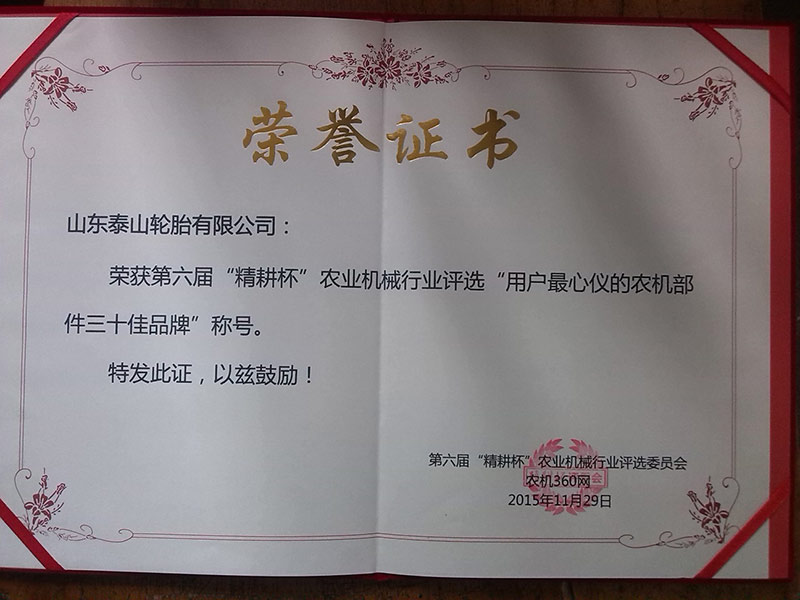 荣誉证书
山东泰山轮胎有限公司：
荣获第六届“精耕杯”农业机械行业评选“用户最心仪的农机部
件三十佳品牌”称号。
特发此证，以兹鼓励！
第六届“精耕杯”农业机械行业评选委员会
农机360网
2015年11月29日